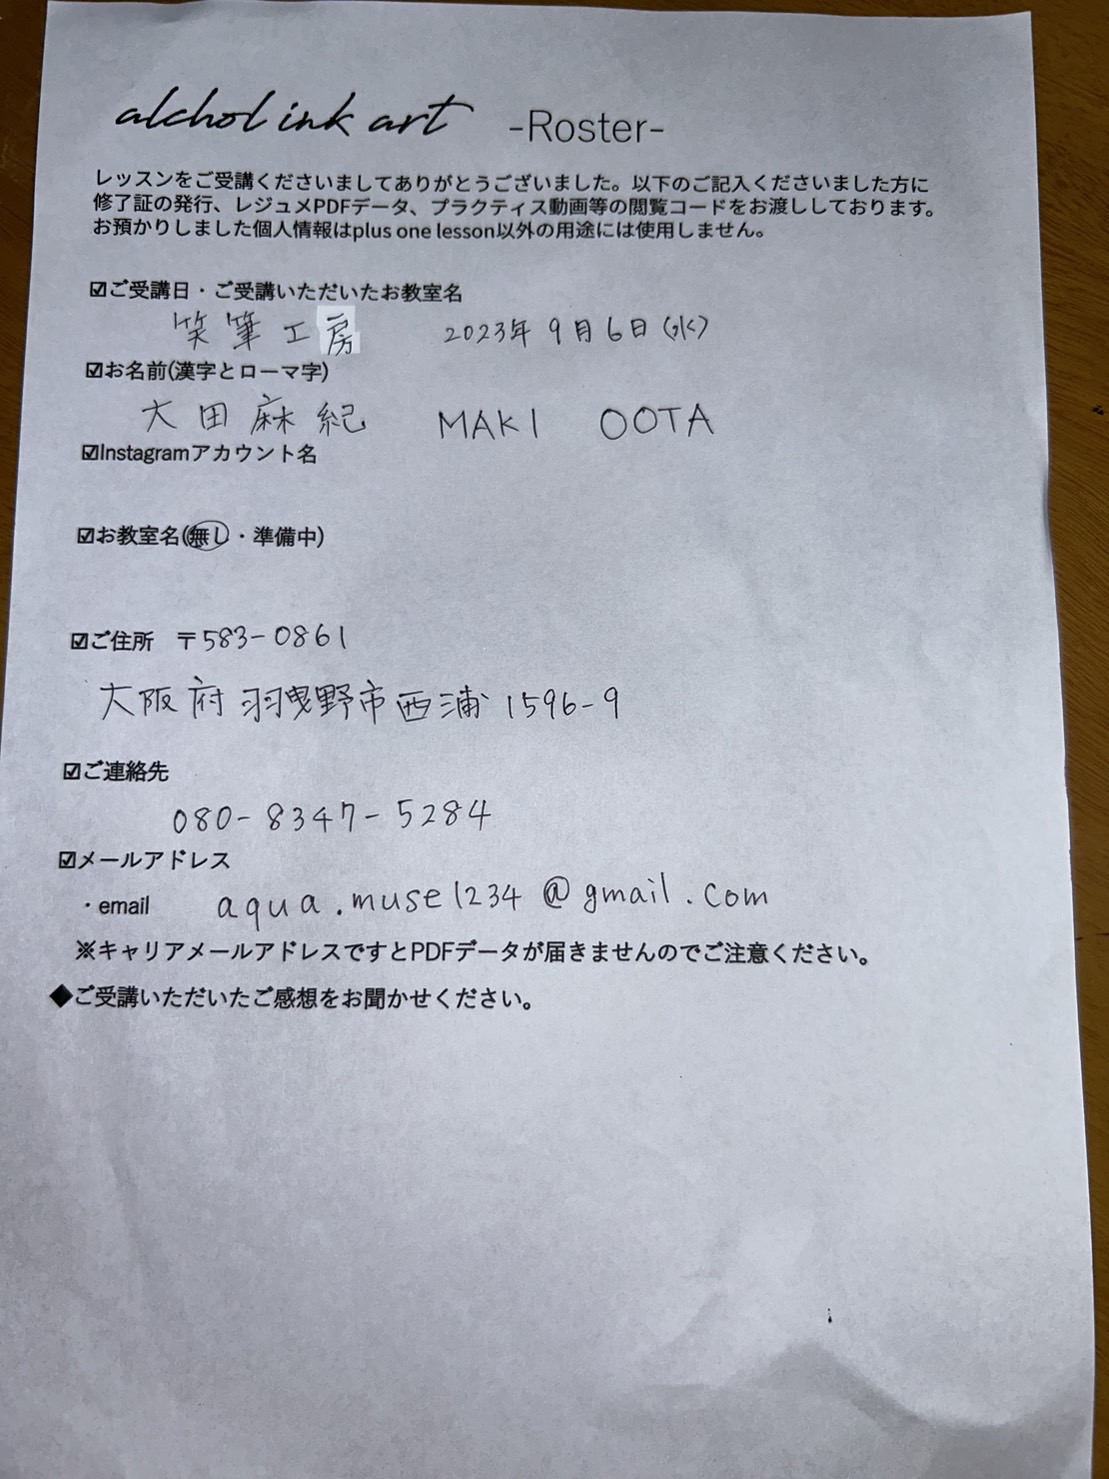 alchol ink art -Roster-
レッスンをご受講くださいましてありがとうございました。以下のご記入くださいました方に
修了証の発行、レジュメPDFデータ、プラクティス動画等の閲覧コードをお渡ししております。
お預かりしました個人情報はplus one lesson以外の用途には使用しません。
☑ご受講日・ご受講いただいたお教室名
笑筆工房 2023年9月6日(水)
☑お名前(漢字とローマ字)
大田麻紀 MAKI OOTA
☑Instagramアカウント名
☑お教室名(無し・準備中)
☑ご住所 〒583-0861
大阪府羽曳野市西浦1596-9
☑ご連絡先
080-8347-5284
☑メールアドレス
・email aqua.muse1234@gmail.com
※キャリアメールアドレスですとPDFデータが届きませんのでご注意ください。
◆ご受講いただいたご感想をお聞かせください。